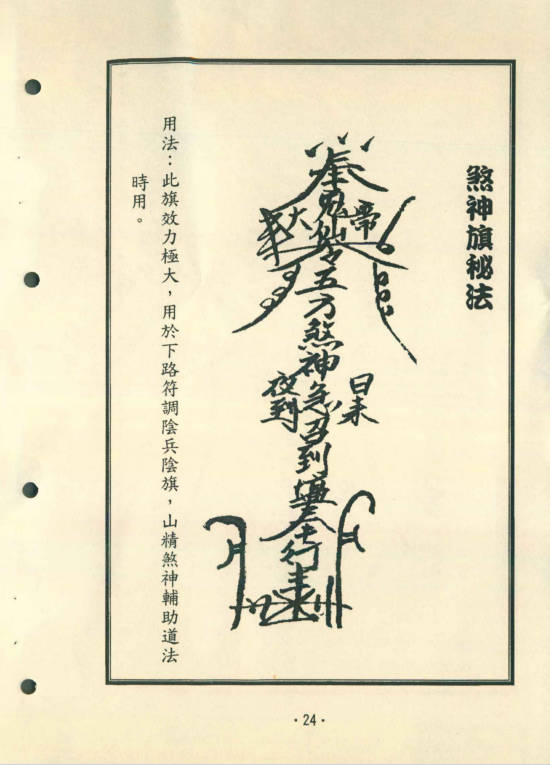 煞神旗秘法
奉
大 帝
五方煞神急召到壇奉行
日來
夜到
用法：此旗效力極大，用於下路符調陰兵陰旗，山精煞神輔助道法
時用。
·24·